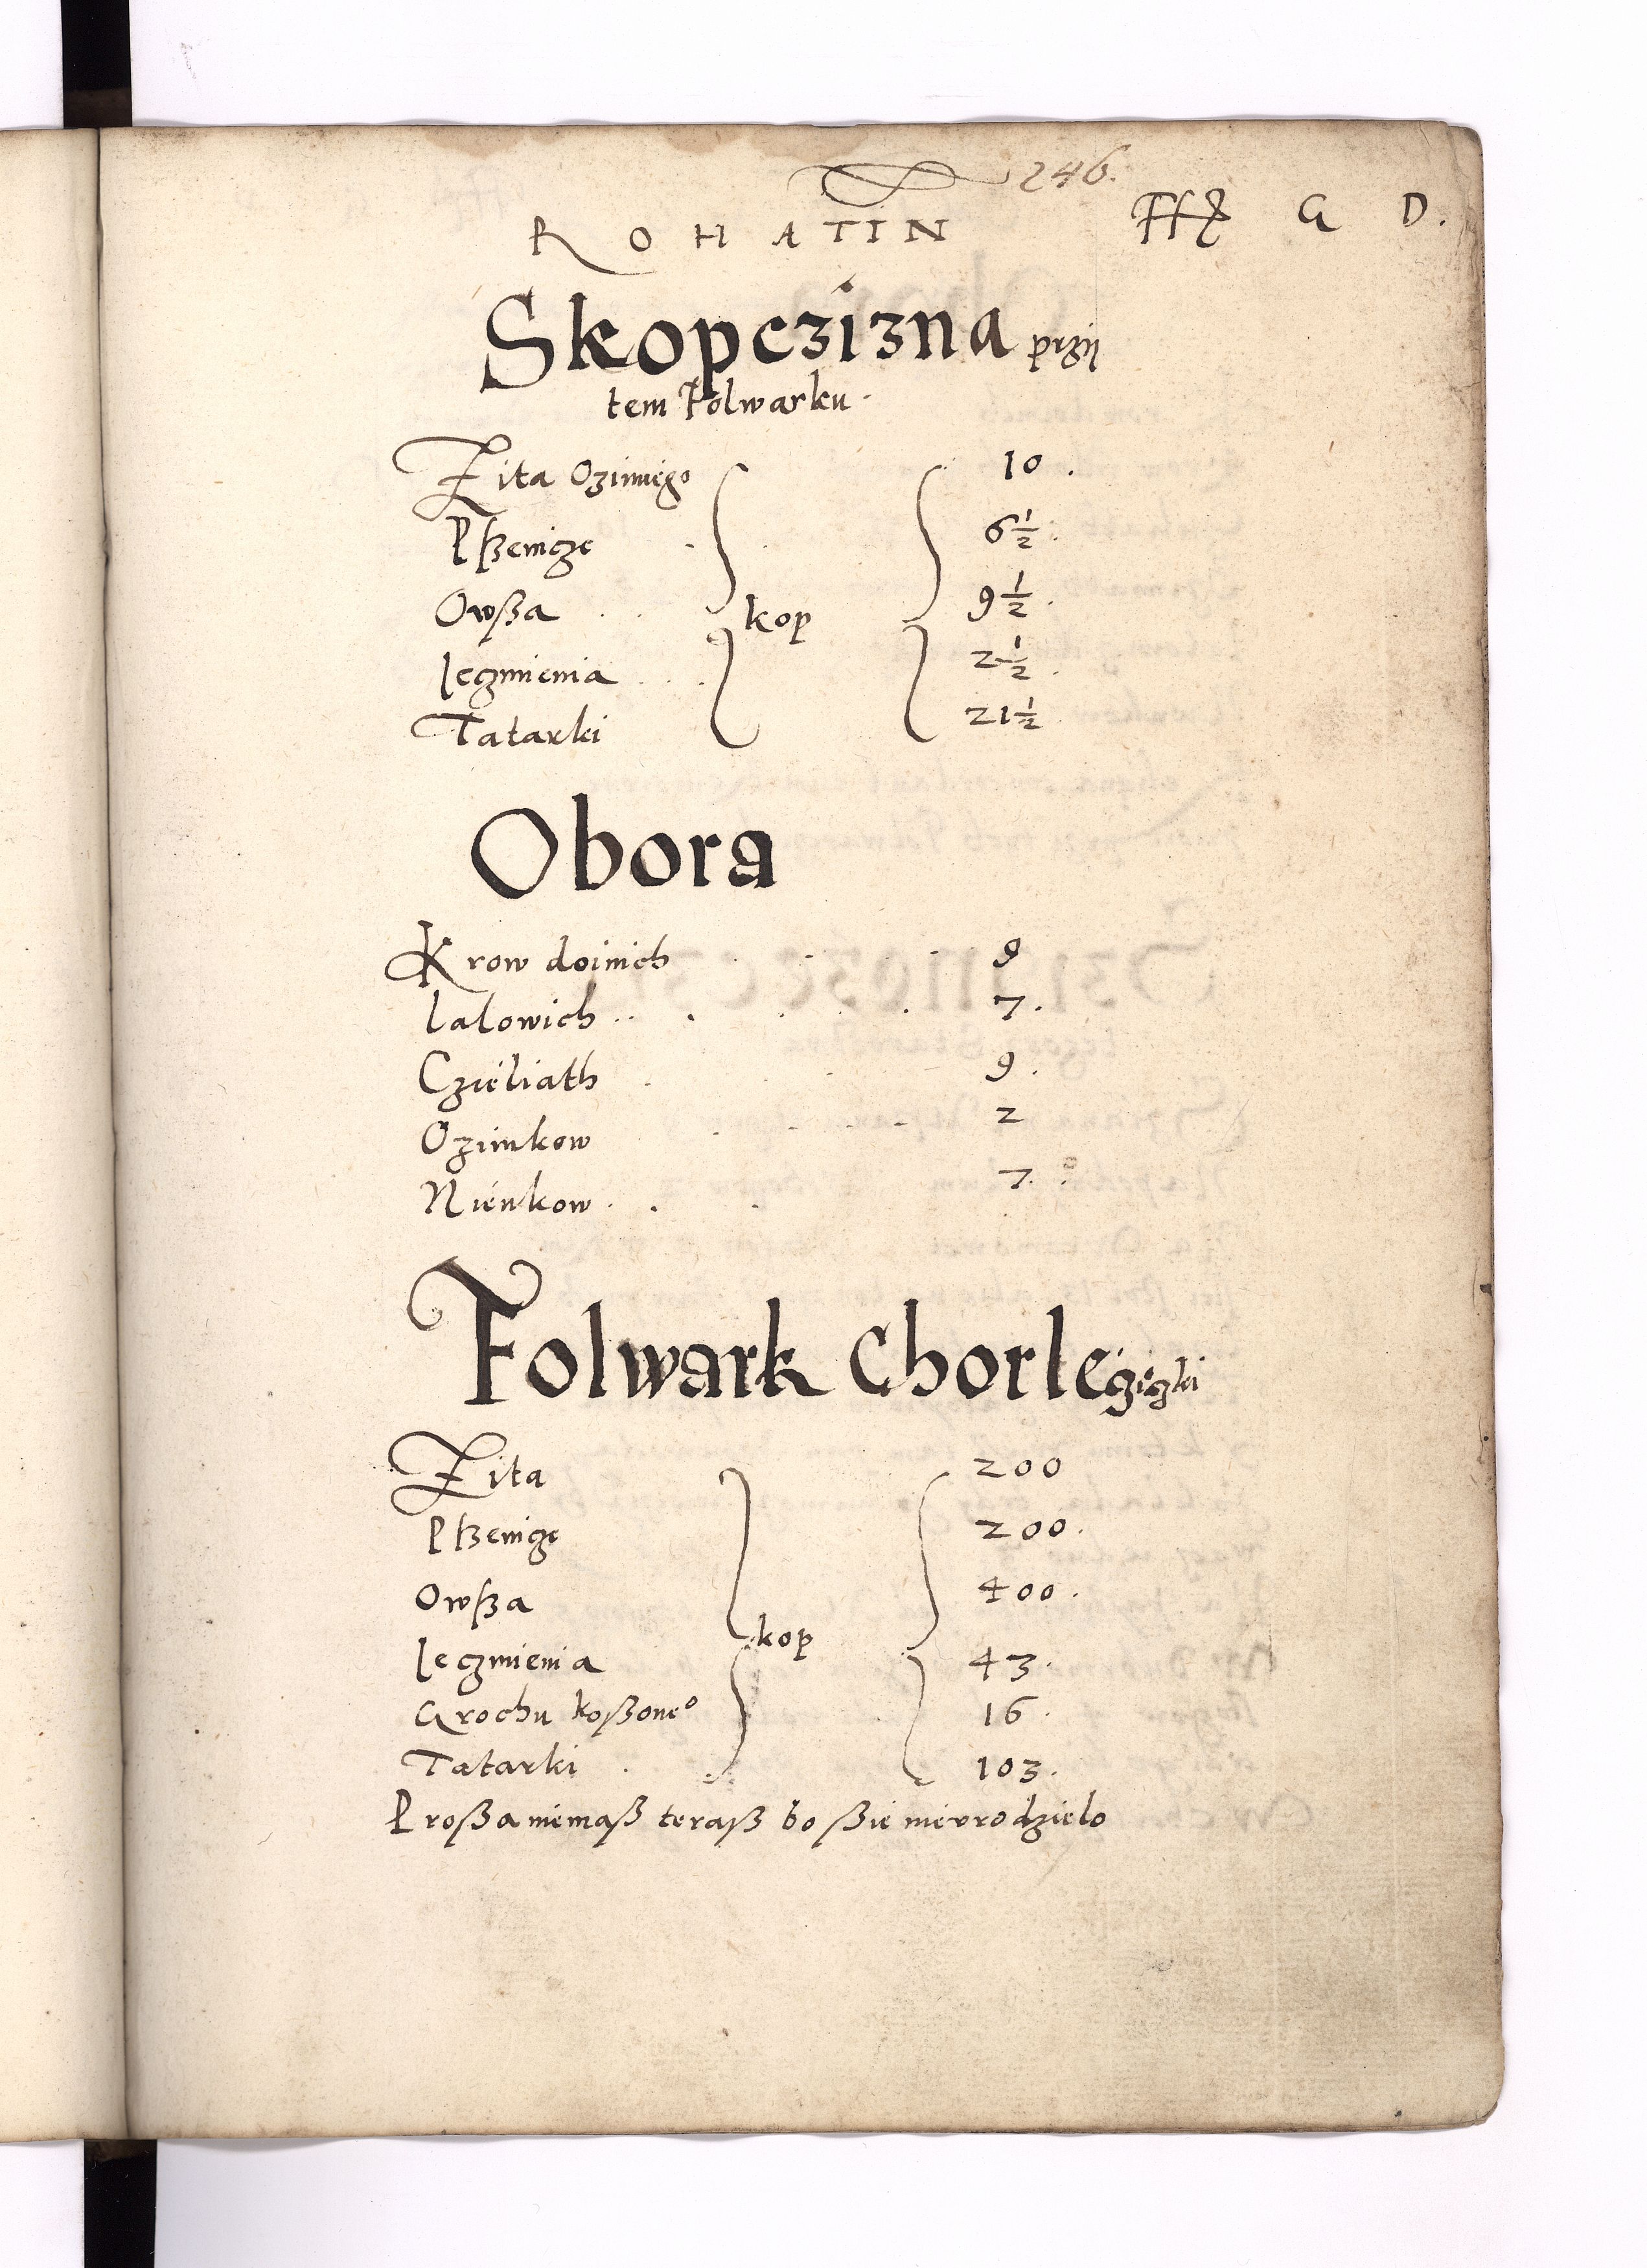 246.
ROHATIN
G D.
Skopczizna przÿ
tem Folwarku.
Zita Ozimiego 10.
Pßenicze 6 1/2.
Owßa 9 1/2.
kop
Jeczmienia 2 1/2.
Tatarki 21 1/2
Obora
Krow doinich 9
Ialowich 7.
Czieliath 9.
Ozimkow 2
Nienkow 7.
Folwark Chorleczeczki
Zita 200
Pßenicze 200.
Owßa 400.
kop
Jeczmienia 43.
Grochu koßoneº 16.
Tatarki 103.
Proßa niemaß teraß bo ßie nievrodzielo